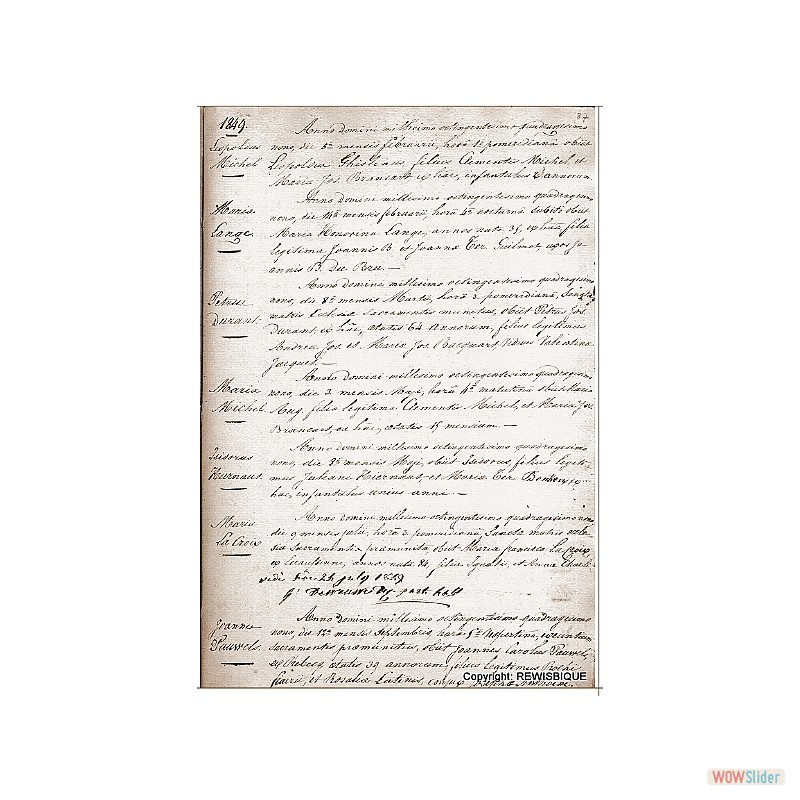 1849. 37
Leopoldus Michel
Anno domini millesimo octingentesimo quadragesimo
nono, die 5ª mensis februarii, horâ 1ª pomeridianâ obiit
Leopoldus Ghislenus, filius Clementis Michel et
Maria Jos. Brancart ex hâc, infantulus annorum
Maria Lange.
Anno domini millesimo octingentesimo quadragesimo
nono, die 14ª mensis februarii, horâ nocturnâ subitò obiit
Maria Honorina Lange, annos nata 35, ex hâc, filia
legitima Joannis B. et Joanna Ter. Guilmot, uxor Jo-
annis B. De Bru. —
Petrus Durant.
Anno domini millesimo octingentesimo quadragesimo
nono, die 8ª mensis Martii, horâ 2 pomeridianâ, Sanctae
matris Ecclesiae sacramentis munitus, obiit Petrus Jos.
Durant ex hâc, aetatis 64 annorum, filius legitimus
Andrea Jos. et Maria Jos. Bacquart, viduus Valentina
Jacques. —
Maria Michel.
Anno domini millesimo octingentesimo quadragesimo
nono, die 2 mensis Maji, horâ 4ª matutinâ obiit Maria
Aug. filia legitima Clementis Michel, et Maria Jos.
Brancart, ex hâc, aetatis 15 mensium. —
Isidorus Hiernaux.
Anno domini millesimo octingentesimo quadragesimo
nono, die mensis Maji, obiit Isidorus, filius legiti-
mus Juliani Hiernaux, et Maria Ter. ex
hâc, infantulus unius anni. —
Maria La Croix
Anno domini millesimo octingentesimo quadragesimo nono
die 9 mensis julii, horâ 2 pomeridianâ, Sancta matris eccle-
sia sacramentis praemunita, obiit Maria La Croix
ex annos nata 84, filia Ignatii, et Anna
vidi hâc 24 july 1849
Joannes Pauwels.
Anno domini millesimo octingentesimo quadragesimo
nono, die 12ª mensis septembris, horâ vespertinâ,
sacramentis praemunitus, obiit Joannes Carolus Pauwels,
ex Rebecq aetatis 39 annorum, filius legitimus
et Rosalia conjux
Copyright: REWISBIQUE
WOWSlider